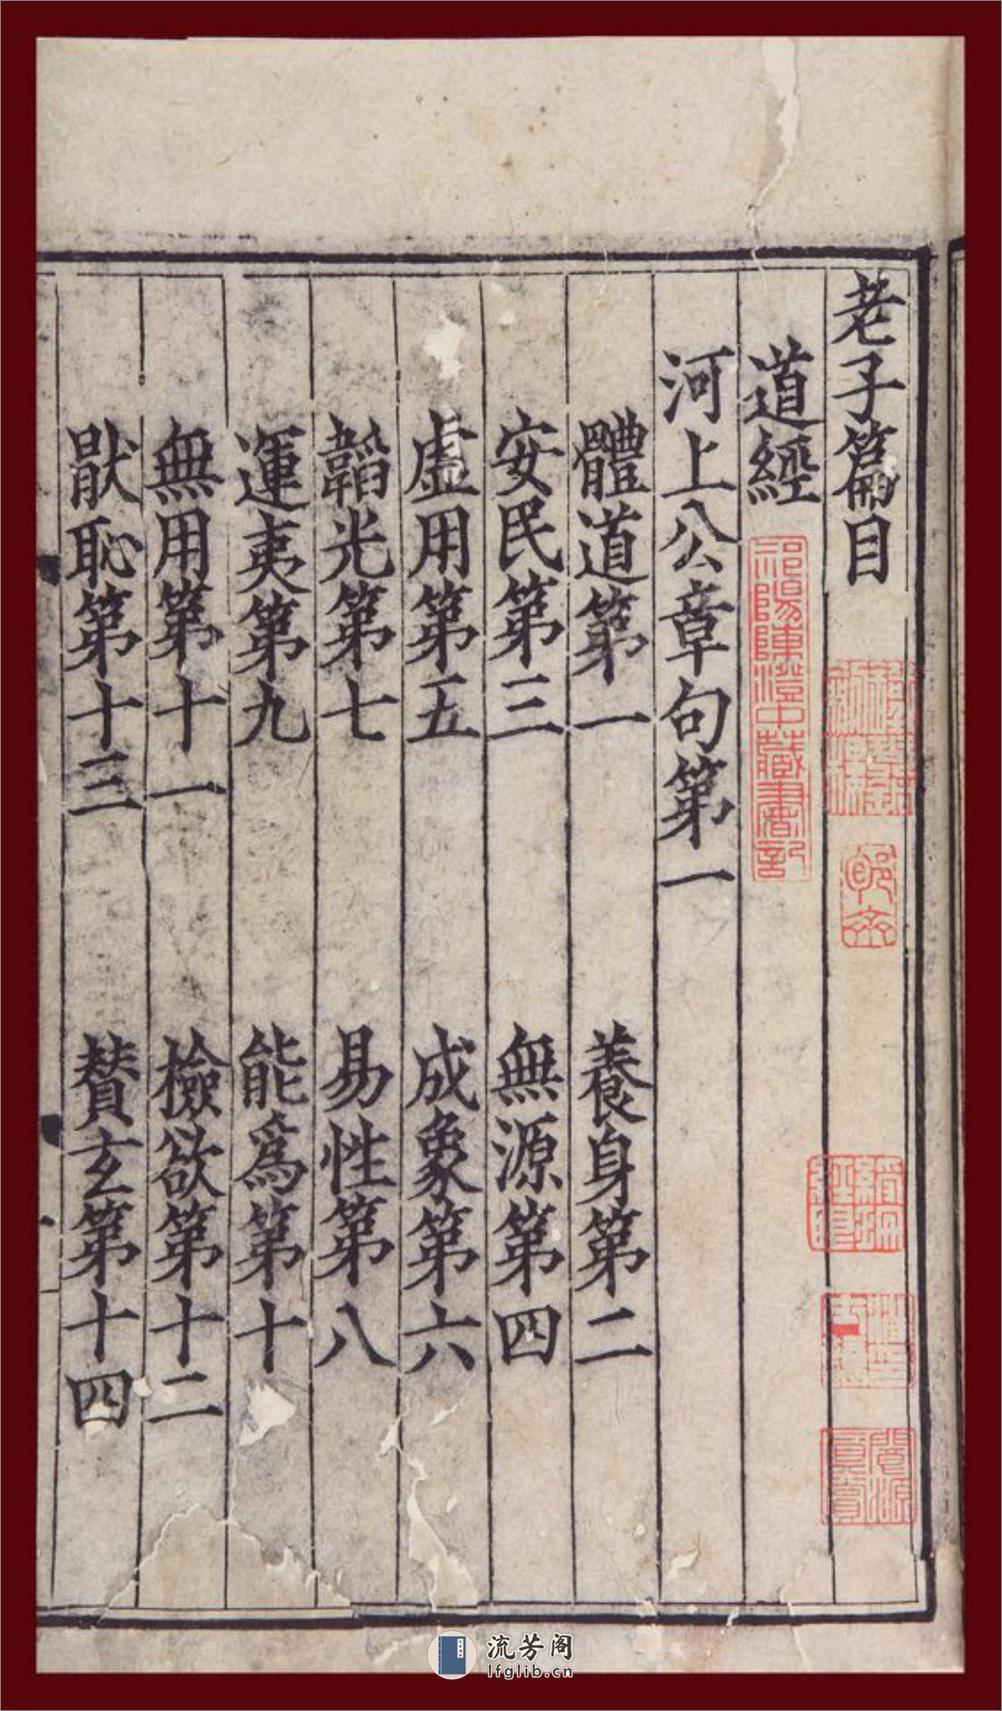 老子篇目
道經
河上公章句第一
體道第一 養身第二
安民第三 無源第四
虛用第五 成象第六
韜光第七 易性第八
運夷第九 能爲第十
無用第十一 檢欲第十二
猒恥第十三 贊玄第十四
祁陽陳澄中藏書記
流芳阁
lfglib.cn